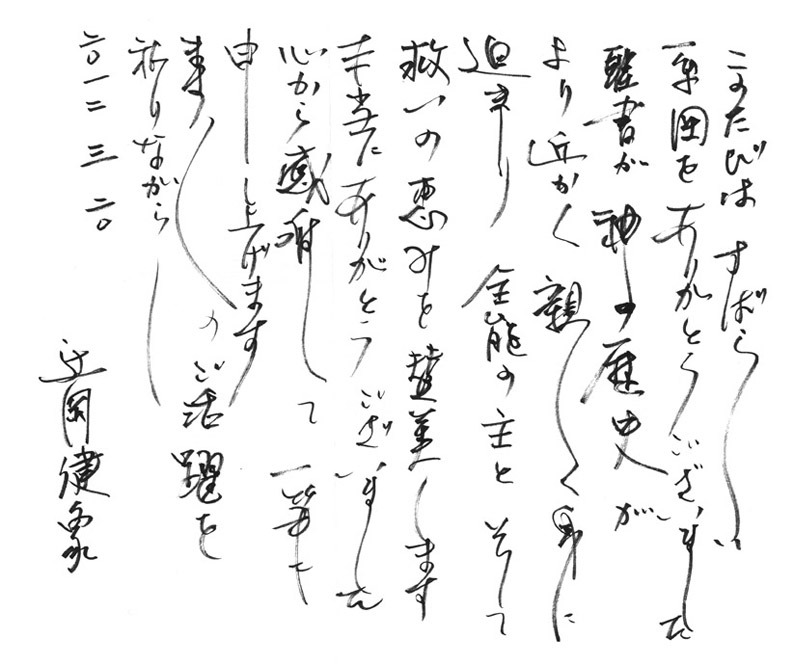 このたびは すばらしい
系図を ありがとうございました
聖書が 神の歴史が
より近かく 親しく身に
迫まり 全能の主と そして
救いの恵みを 賛美します
本当にありがとうございました
心から感謝して 一筆
申し上げます
ますますのご活躍を
祈りながら
二〇一二 三 二〇
辻岡健象